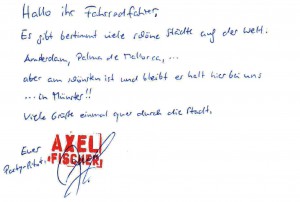 Hallo ihr Fahrradfahrer,
Es gibt bestimmt viele schöne Städte auf der Welt.
Amsterdam, Palma de Mallorca, ...
aber am schönsten ist und bleibt es halt hier bei uns
... in Münster!!
Viele Grüße einmal quer durch die Stadt,
Euer
AXEL
FISCHER